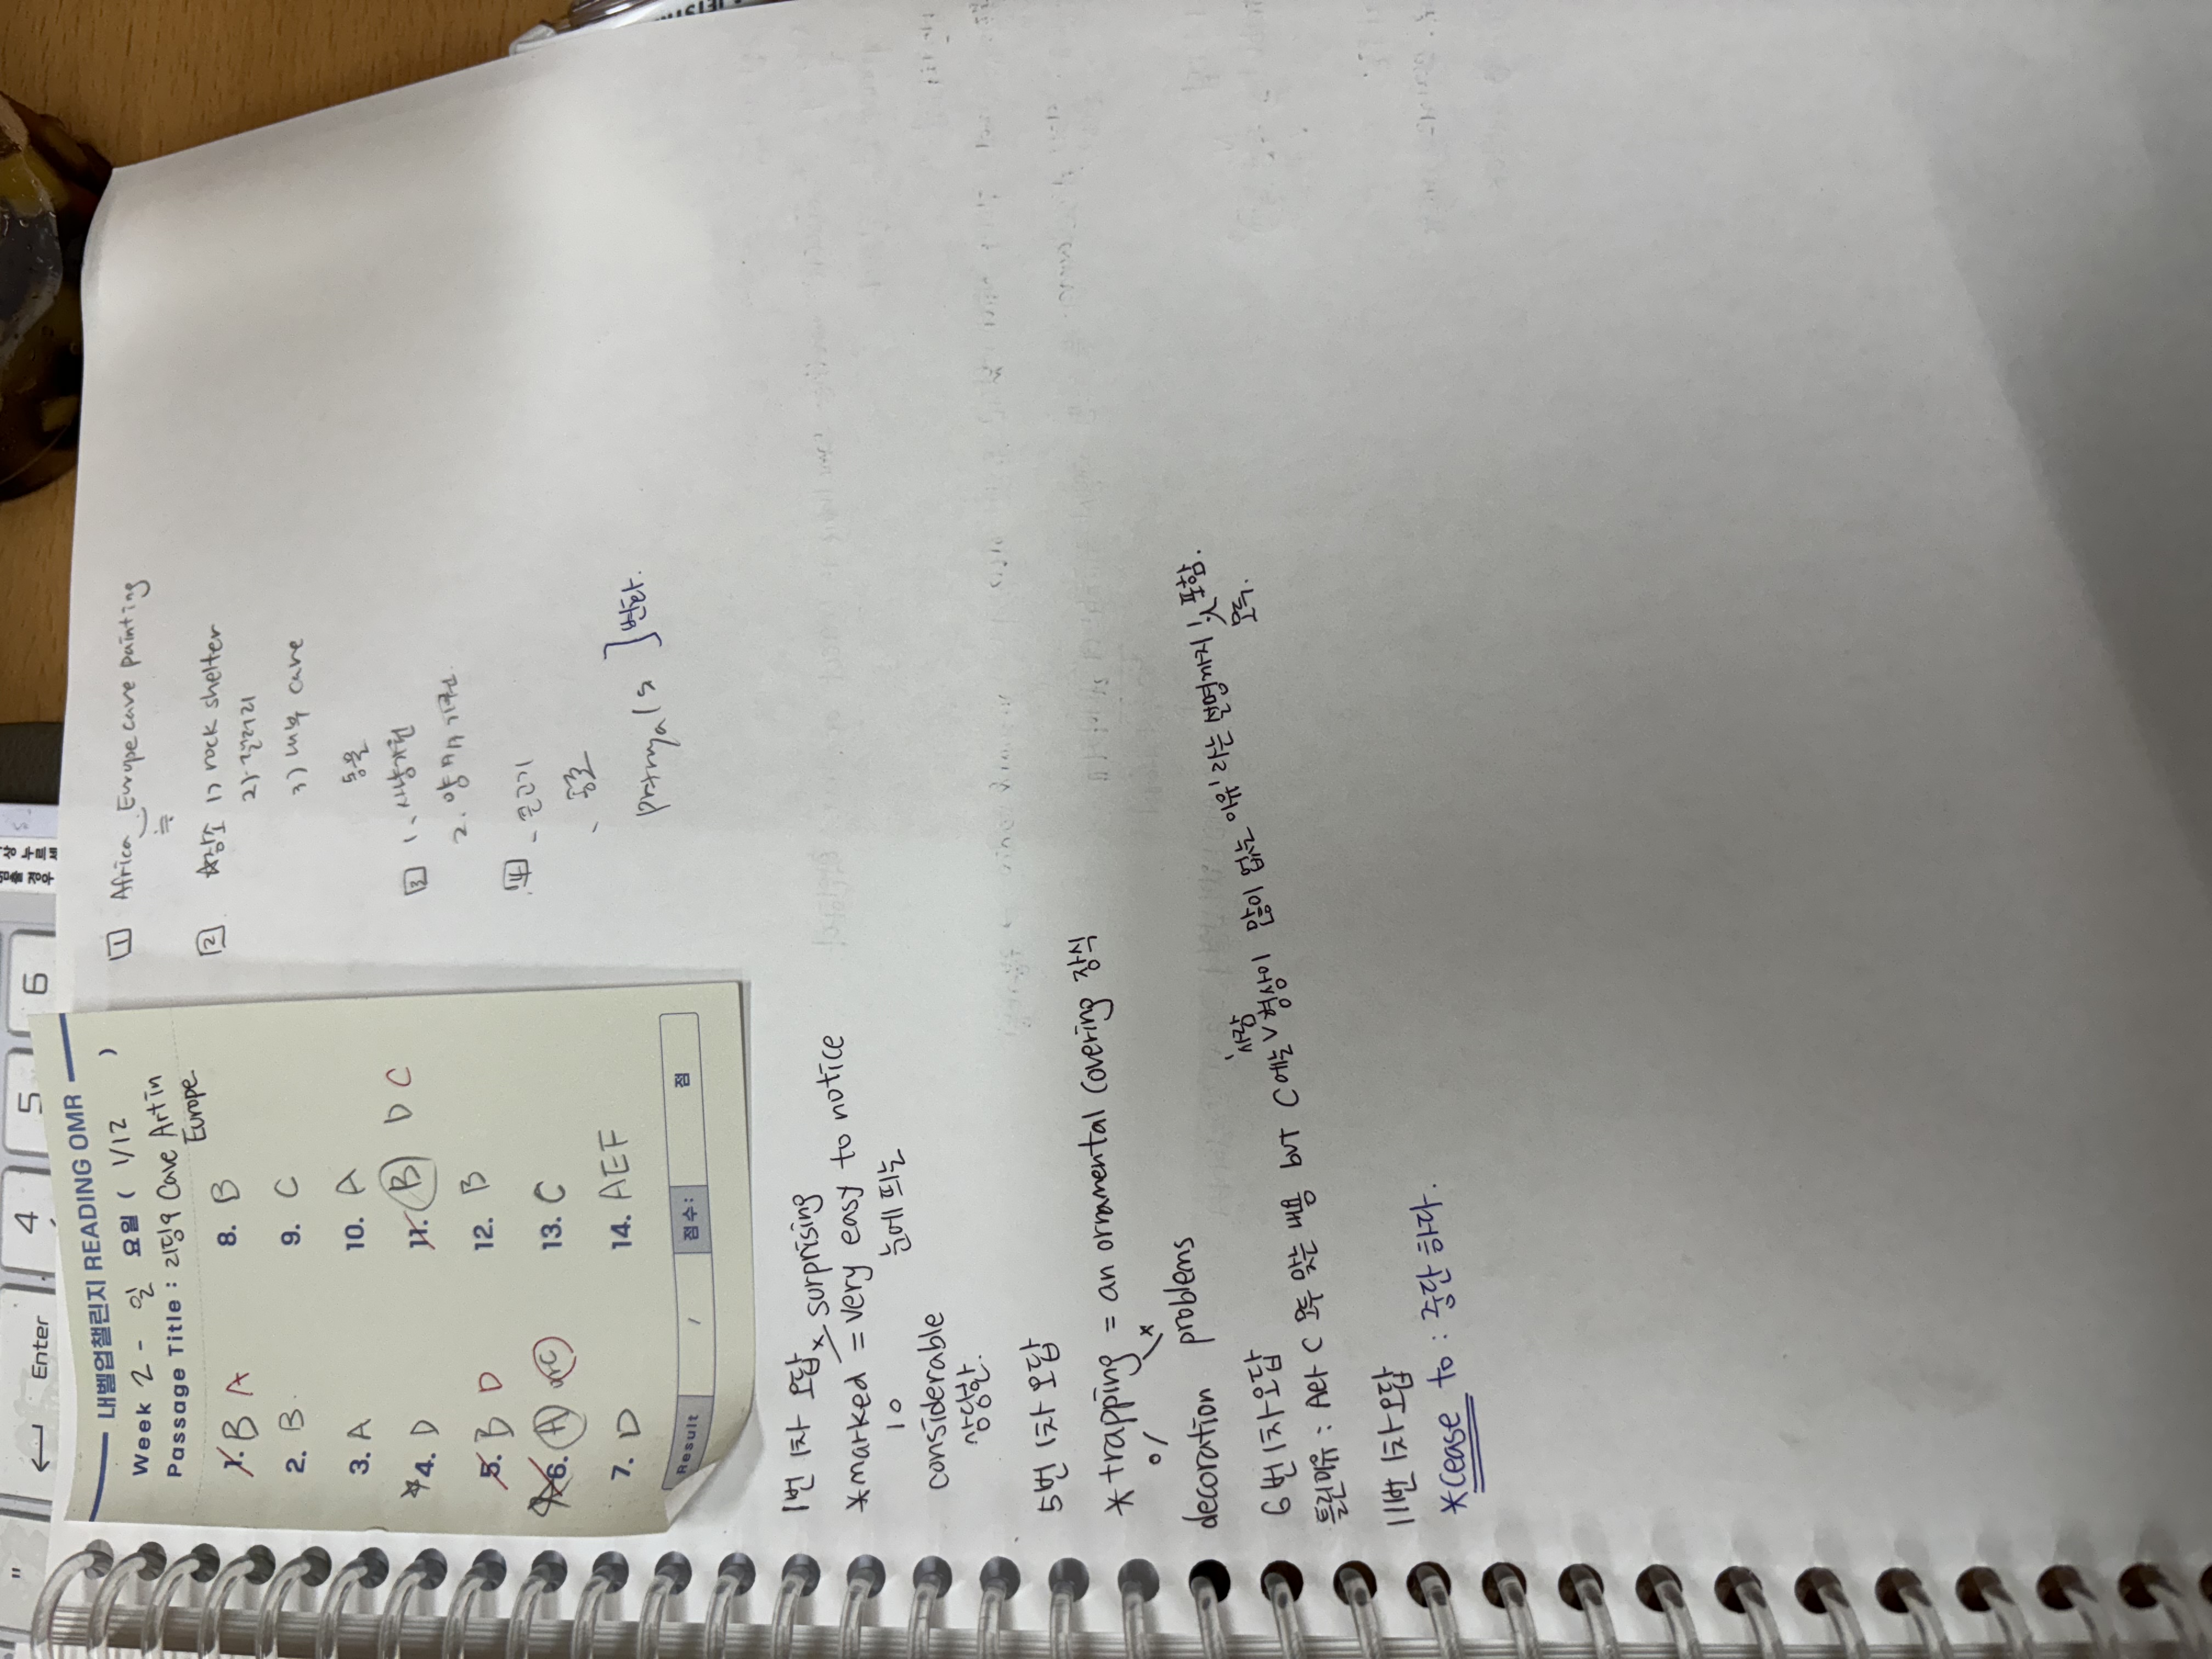 내벨업챌린지 READING OMR
Week 2 - 일 요일 ( 1/12 )
Passage Title : 리딩9 Cave Art in Europe
1. B A
2. B
3. A
4. D
5. B D
6. A C
7. D
8. B
9. C
10. A
11. B D C
12. B
13. C
14. AEF
Result / 점수: 점
1 Africa Europe cave painting
2 장소 1) rock shelter
2)
3) 내부 cave
동물
3 1.
2.
4 - 물고기
-
portrayals ] 반하다.
1번 1차 오답
x surprising
*marked = very easy to notice
눈에 띄는
considerable
상당한.
5번 1차 오답
*trapping = an ornamental covering 장식
decoration problems
6번 1차오답
틀린이유 : A와 C 모두 맞는 내용 but C에는 사람 형상이 많이 없는 이유' 라는 설명까지 포함.
11번 1차오답
*cease to : 중단 하다.
← Enter
4
5
6